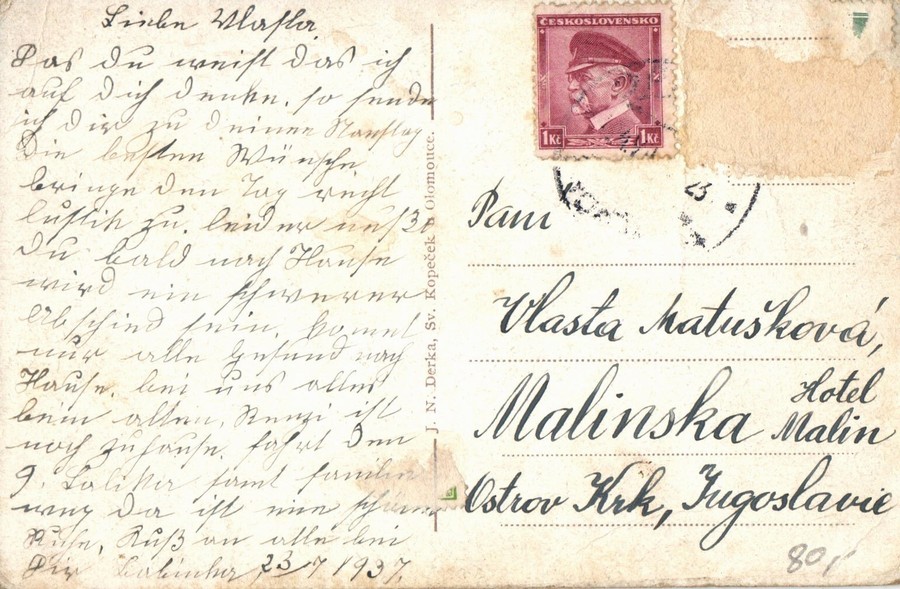 Liebe Vlasta
Das du weist das ich
auf dich denke. so sende
ich dir zu deinen
die besten Wünsche
bringe den Tag recht
lustik zu. leider
du bald nach Hause
wird ein schwerer
Abschied sein. komt
nur alle gesund nach
Hause. bei uns alles
beim alten, Renzi ist
noch zuhause. fahrt den
9. samt familie
weg da ist eine
Ruhe, Kuß an alle bei
Dir 23/7 1937.
J. N. Derka, Sv. Kopeček u Olomouce.
ČESKOSLOVENSKO
1 Kč 1 Kč
23
Paní
Vlasta Matušková,
Malinska Hotel
Malin
Ostrov Krk, Jugoslavie
80,-